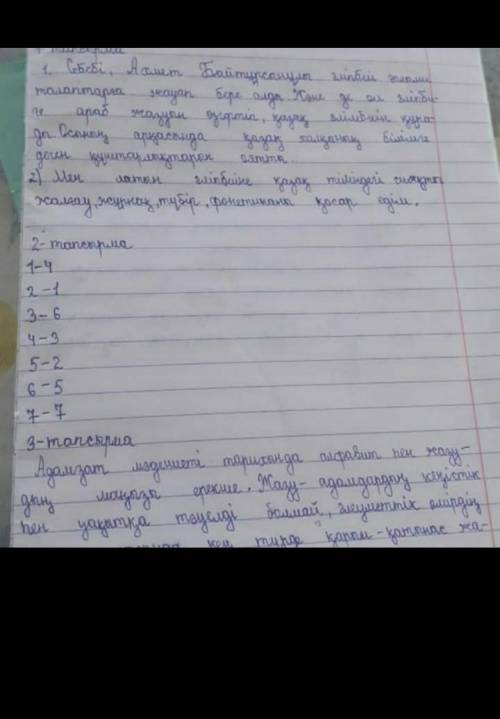 1-тапсырма
1. Себебі, Ахмет Байтұрсынұлы әліпбиі ғылыми
талаптарға жауап бере алды. Және де ол әліпби-
ге араб жазуын өзгертіп, қазақ әліпбиін құра-
ды. Осының арқасында қазақ халқының білімге
деген құштарлықтарын
2) Мен латын әліпбиіне қазақ тіліндегі сияқты
жалғау, жұрнақ, түбір, фонетиканы қосар едім.
2-тапсырма
1-4
2-1
3-6
4-3
5-2
6-5
7-7
3-тапсырма
Адамзат мәдениеті тарихында алфавит пен жазу-
дың маңызы ерекше. Жазу - адамдардың кеңістік
пен уақытқа тәуелді болмай, әлеуметтік өмірдің
кең түрде қарым-қатынас жа-